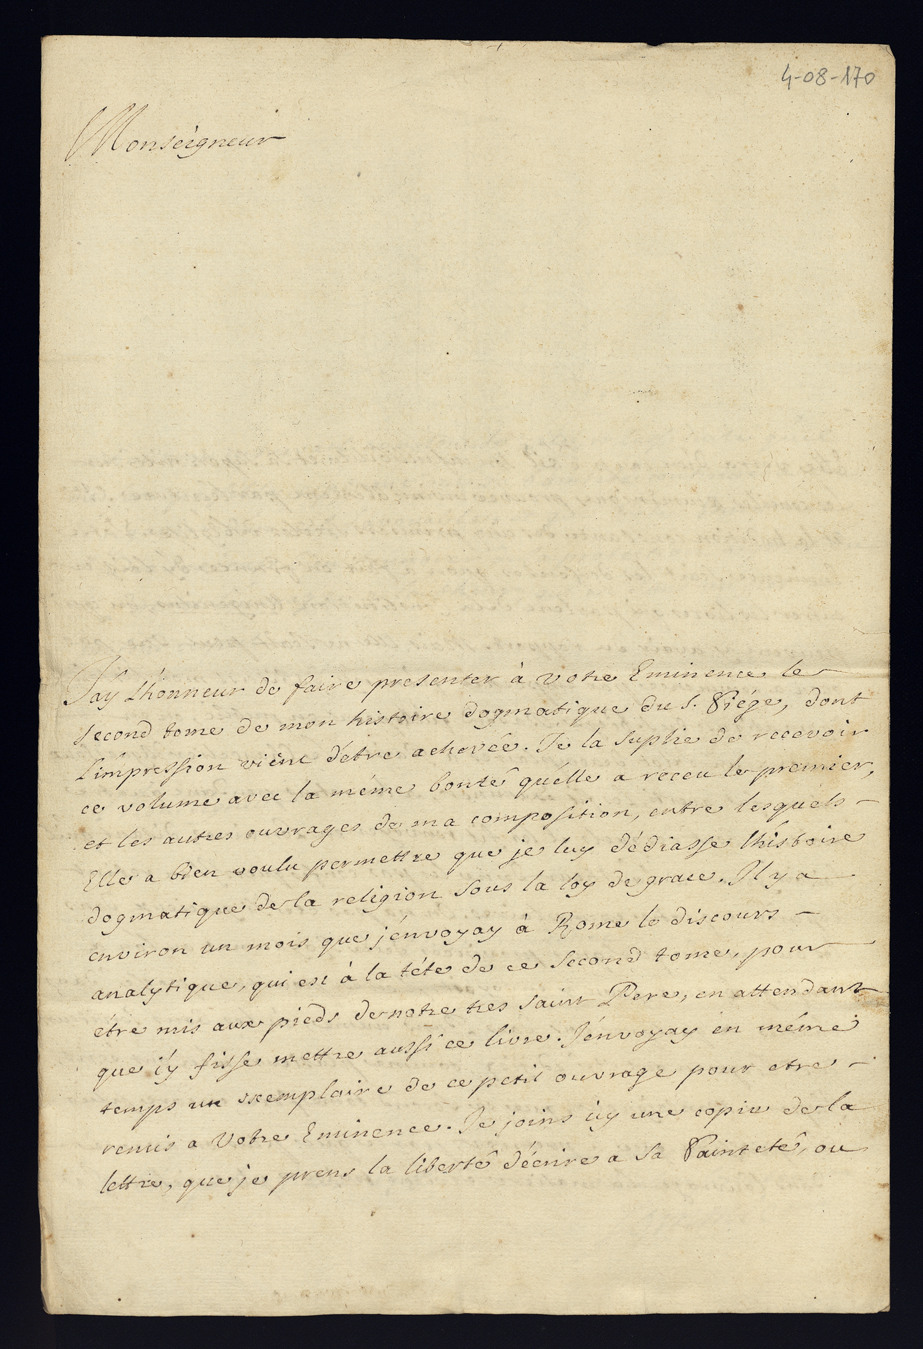 4-08-170
Monseigneur
J'ay L'honneur de faire presenter à Votre Eminence le
second tome de mon histoire dogmatique du S. Siége, dont
L'impression vient d'étre achevée. Je la suplie de recevoir
ce volume avec la méme bonté qu'élle a receu le premier,
et les autres ouvrages de ma composition, entre lesquéls
Elle a bien voulu permettre que je luy dédiasse l'histoire
dogmatique de la religion sous la loy de grace. Il y a
environ un mois que j'envoyay à Rome le discours
analytique, qui est à la téte de ce second tome, pour
étre mis aux pieds de notre tres saint Pere, en attendant
que j'y fisse mettre aussi ce livre. J'envoyay en méme
temps un exemplaire de ce petit ouvrage pour etre
remis a Votre Eminence. Je joins icy une copie de la
lettre, que je prens la liberté d'écrire a sa Sainteté, ou